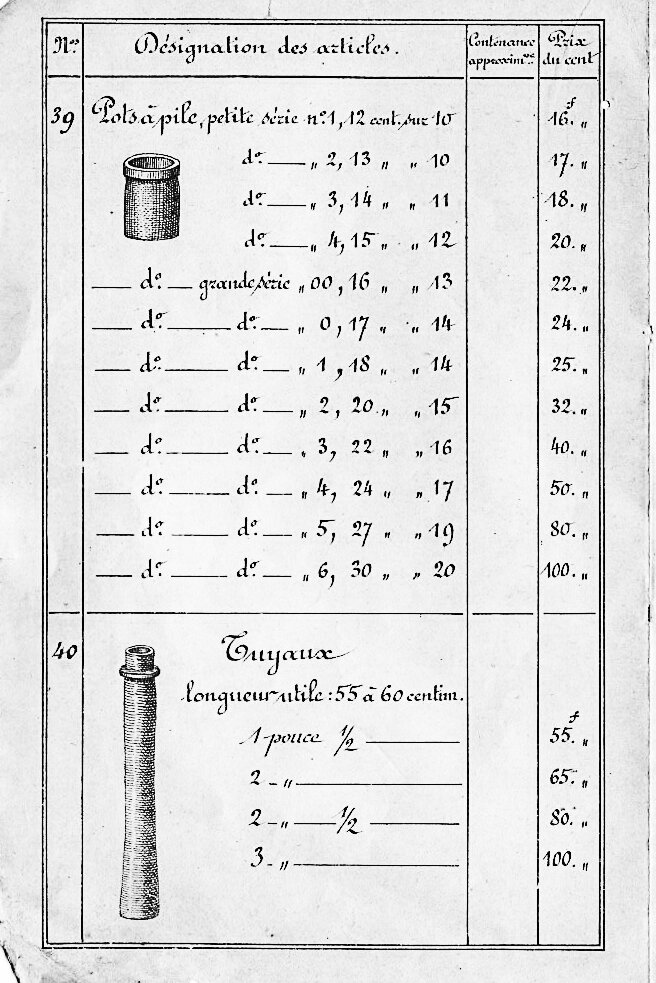 Nos Désignation des articles. Contenance approximve Prix du cent
39 Pots à pile, petite série no. 1, 12 cent. sur 10 16.f „
do. — „ 2, 13 „ „ 10 17. „
do. — „ 3, 14 „ „ 11 18. „
do. — „ 4, 15 „ „ 12 20. „
— do. — grande série „ 00, 16 „ „ 13 22. „
— do. — do. — „ 0, 17 „ „ 14 24. „
— do. — do. — „ 1, 18 „ „ 14 25. „
— do. — do. — „ 2, 20 „ „ 15 32. „
— do. — do. — „ 3, 22 „ „ 16 40. „
— do. — do. — „ 4, 24 „ „ 17 50. „
— do. — do. — „ 5, 27 „ „ 19 80. „
— do. — do. — „ 6, 30 „ „ 20 100. „
40 Tuyaux
longueur utile : 55 à 60 centim.
1 pouce 1/2 — 55.f „
2 - „ — 65. „
2 - „ — 1/2 — 80. „
3 - „ — 100. „